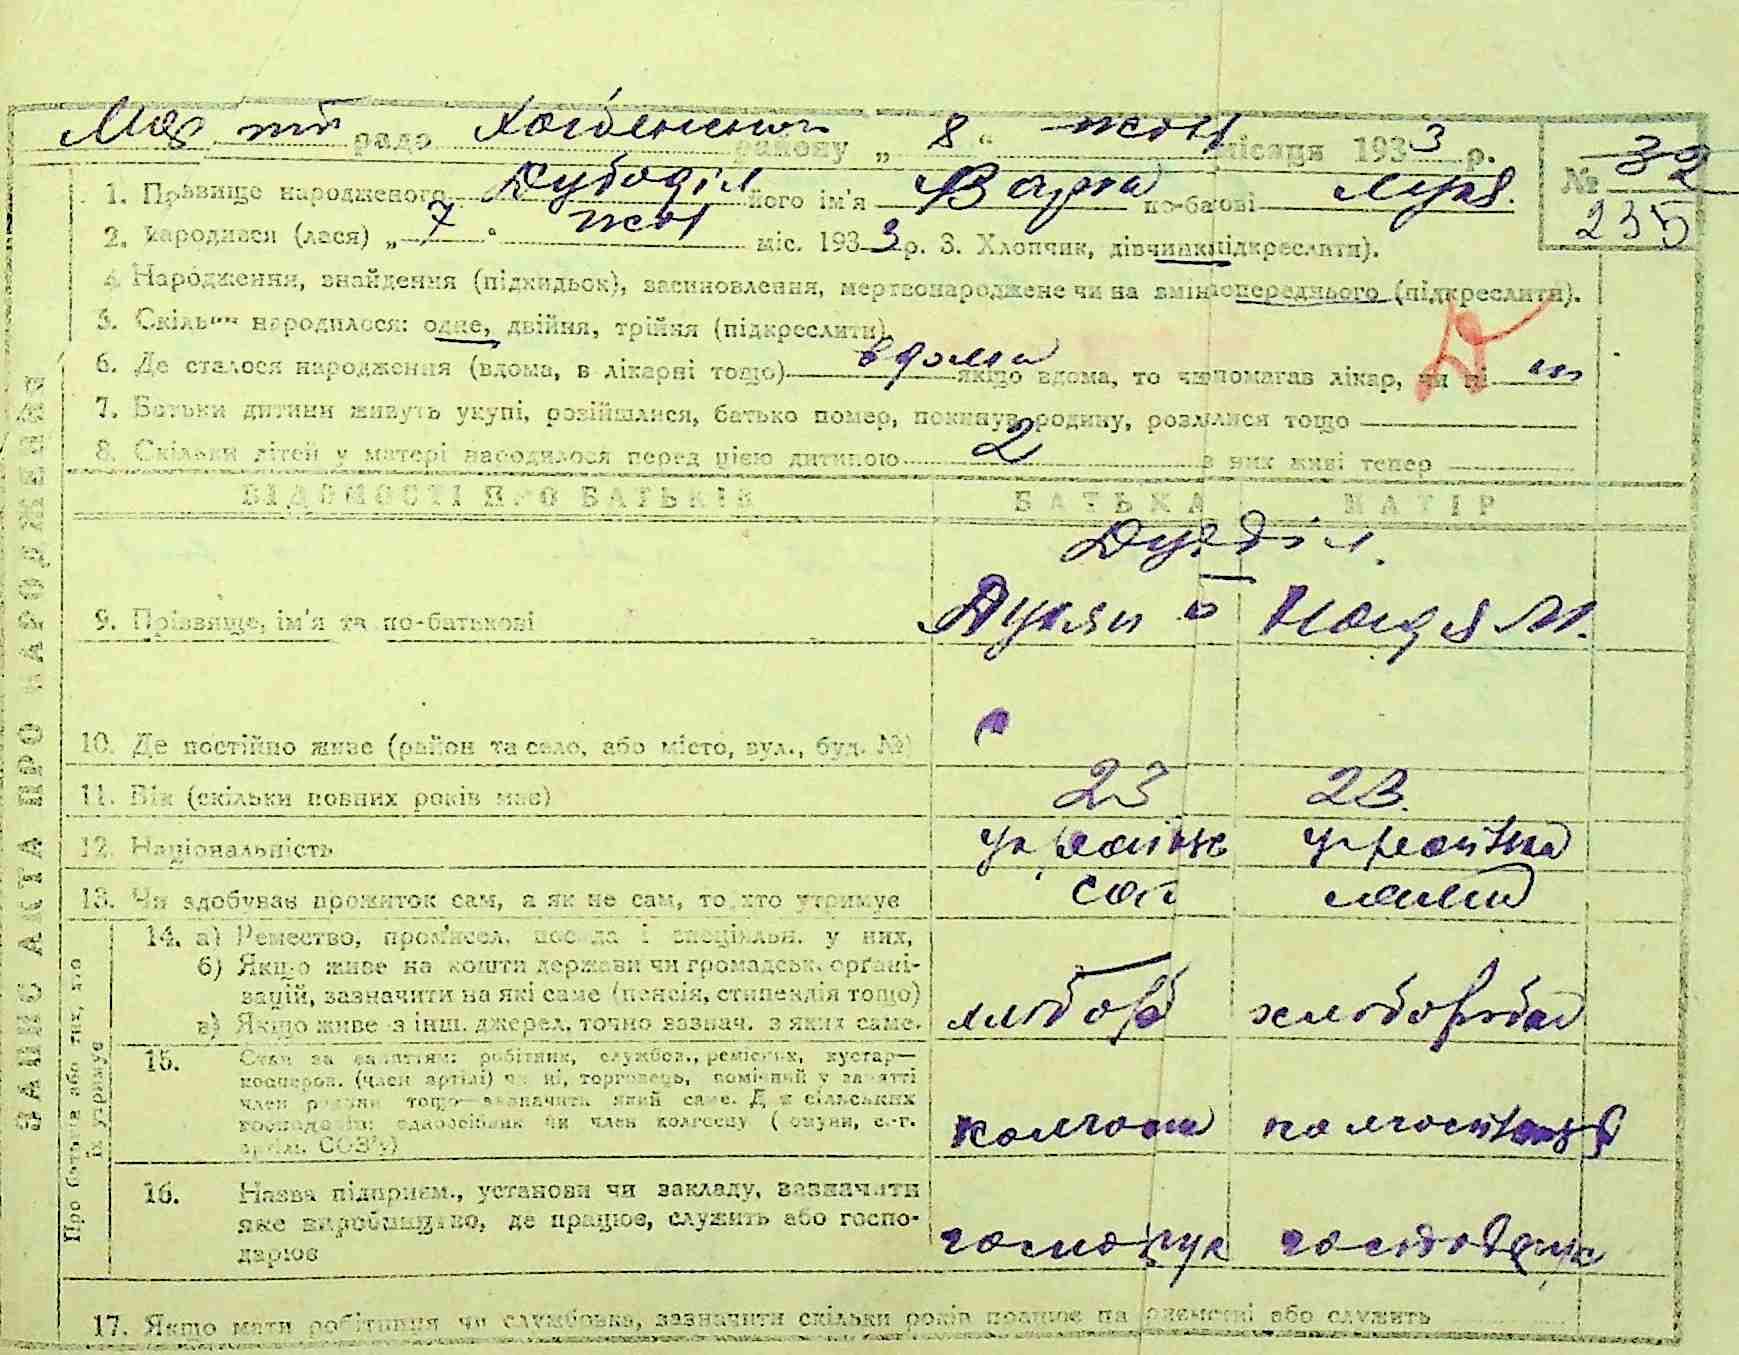 рада району „ 8 “ жовт місяця 1933 р.
№ 32
235
1. Прізвище народженого Дубоділ його ім'я Варка по-батькові Лук.
2. Народився (лася) „ 7 “ жовт міс. 1933 р. 3. Хлопчик, дівчинка (підкреслити).
4. Народження, знайдення (підкидьок), засиновлення, мертвонароджене чи на зміну попереднього (підкреслити).
5. Скільки народилося: одне, двійня, трійня (підкреслити)
6. Де сталося народження (вдома, в лікарні тощо) вдома якщо вдома, то чи допомагав лікар, чи ні ні
7. Батьки дитини живуть укупі, розійшлися, батько помер, покинув родину, розлілися тощо
8. Скільки дітей у матері народилося перед цією дитиною 2 з них живі тепер
ВІДОМОСТІ ПРО БАТЬКІВ БАТЬКА МАТІР
Дубоділ.
9. Прізвище, ім'я та по-батькові Лукян М.
10. Де постійно живе (район та село, або місто, вул., буд. №)
11. Вік (скільки повних років має) 23 23.
12. Національність українец українка
13. Чи здобуває прожиток сам, а як не сам, то хто утримує сам
14. а) Ремество, промисел, посада і спеціяльн. у них,
б) Якщо живе на кошти держави чи громадськ. орґані-
зацій, зазначити на які саме (пенсія, стипендія тощо)
в) Якщо живе з інш. джерел, точно зазнач. з яких саме. хлібороб хлібороб
15. Стан за заняттям: робітник, службов., ремісник, кустар—
кооперов. (член артілі) чи ні, торговець, помічний у занятті
член родини тощо—зазначити який саме. Для сільських
господарів: одноосібник чи член колгоспу (комуни, с.-г.
артіль, СОЗ'у) колгосп
16. Назва підприєм., установи чи закладу, зазначити
яке виробництво, де працює, служить або госпо-
дарює
17. Якщо мати робітниця чи службовка, зазначити скільки років працює на підприємстві або служить
ЗАПИС АКТА ПРО НАРОДЖЕННЯ
Про батька або тих, хто
їх утримує